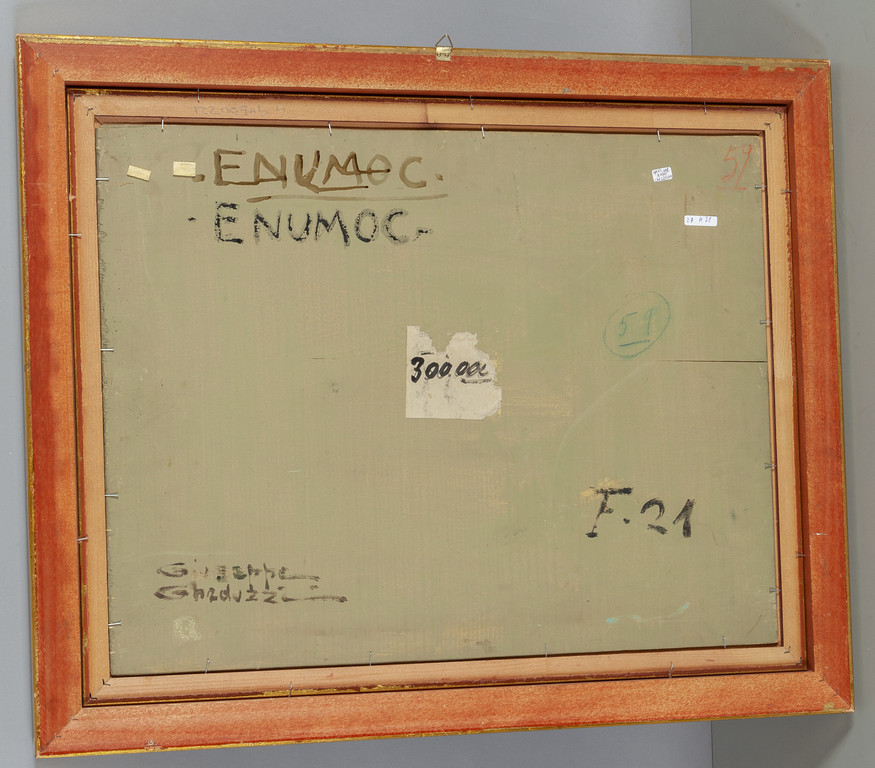 59
·ENUMOC.
·ENUMOC-
59
300.000
F.21
Giuseppe
Gheduzzi